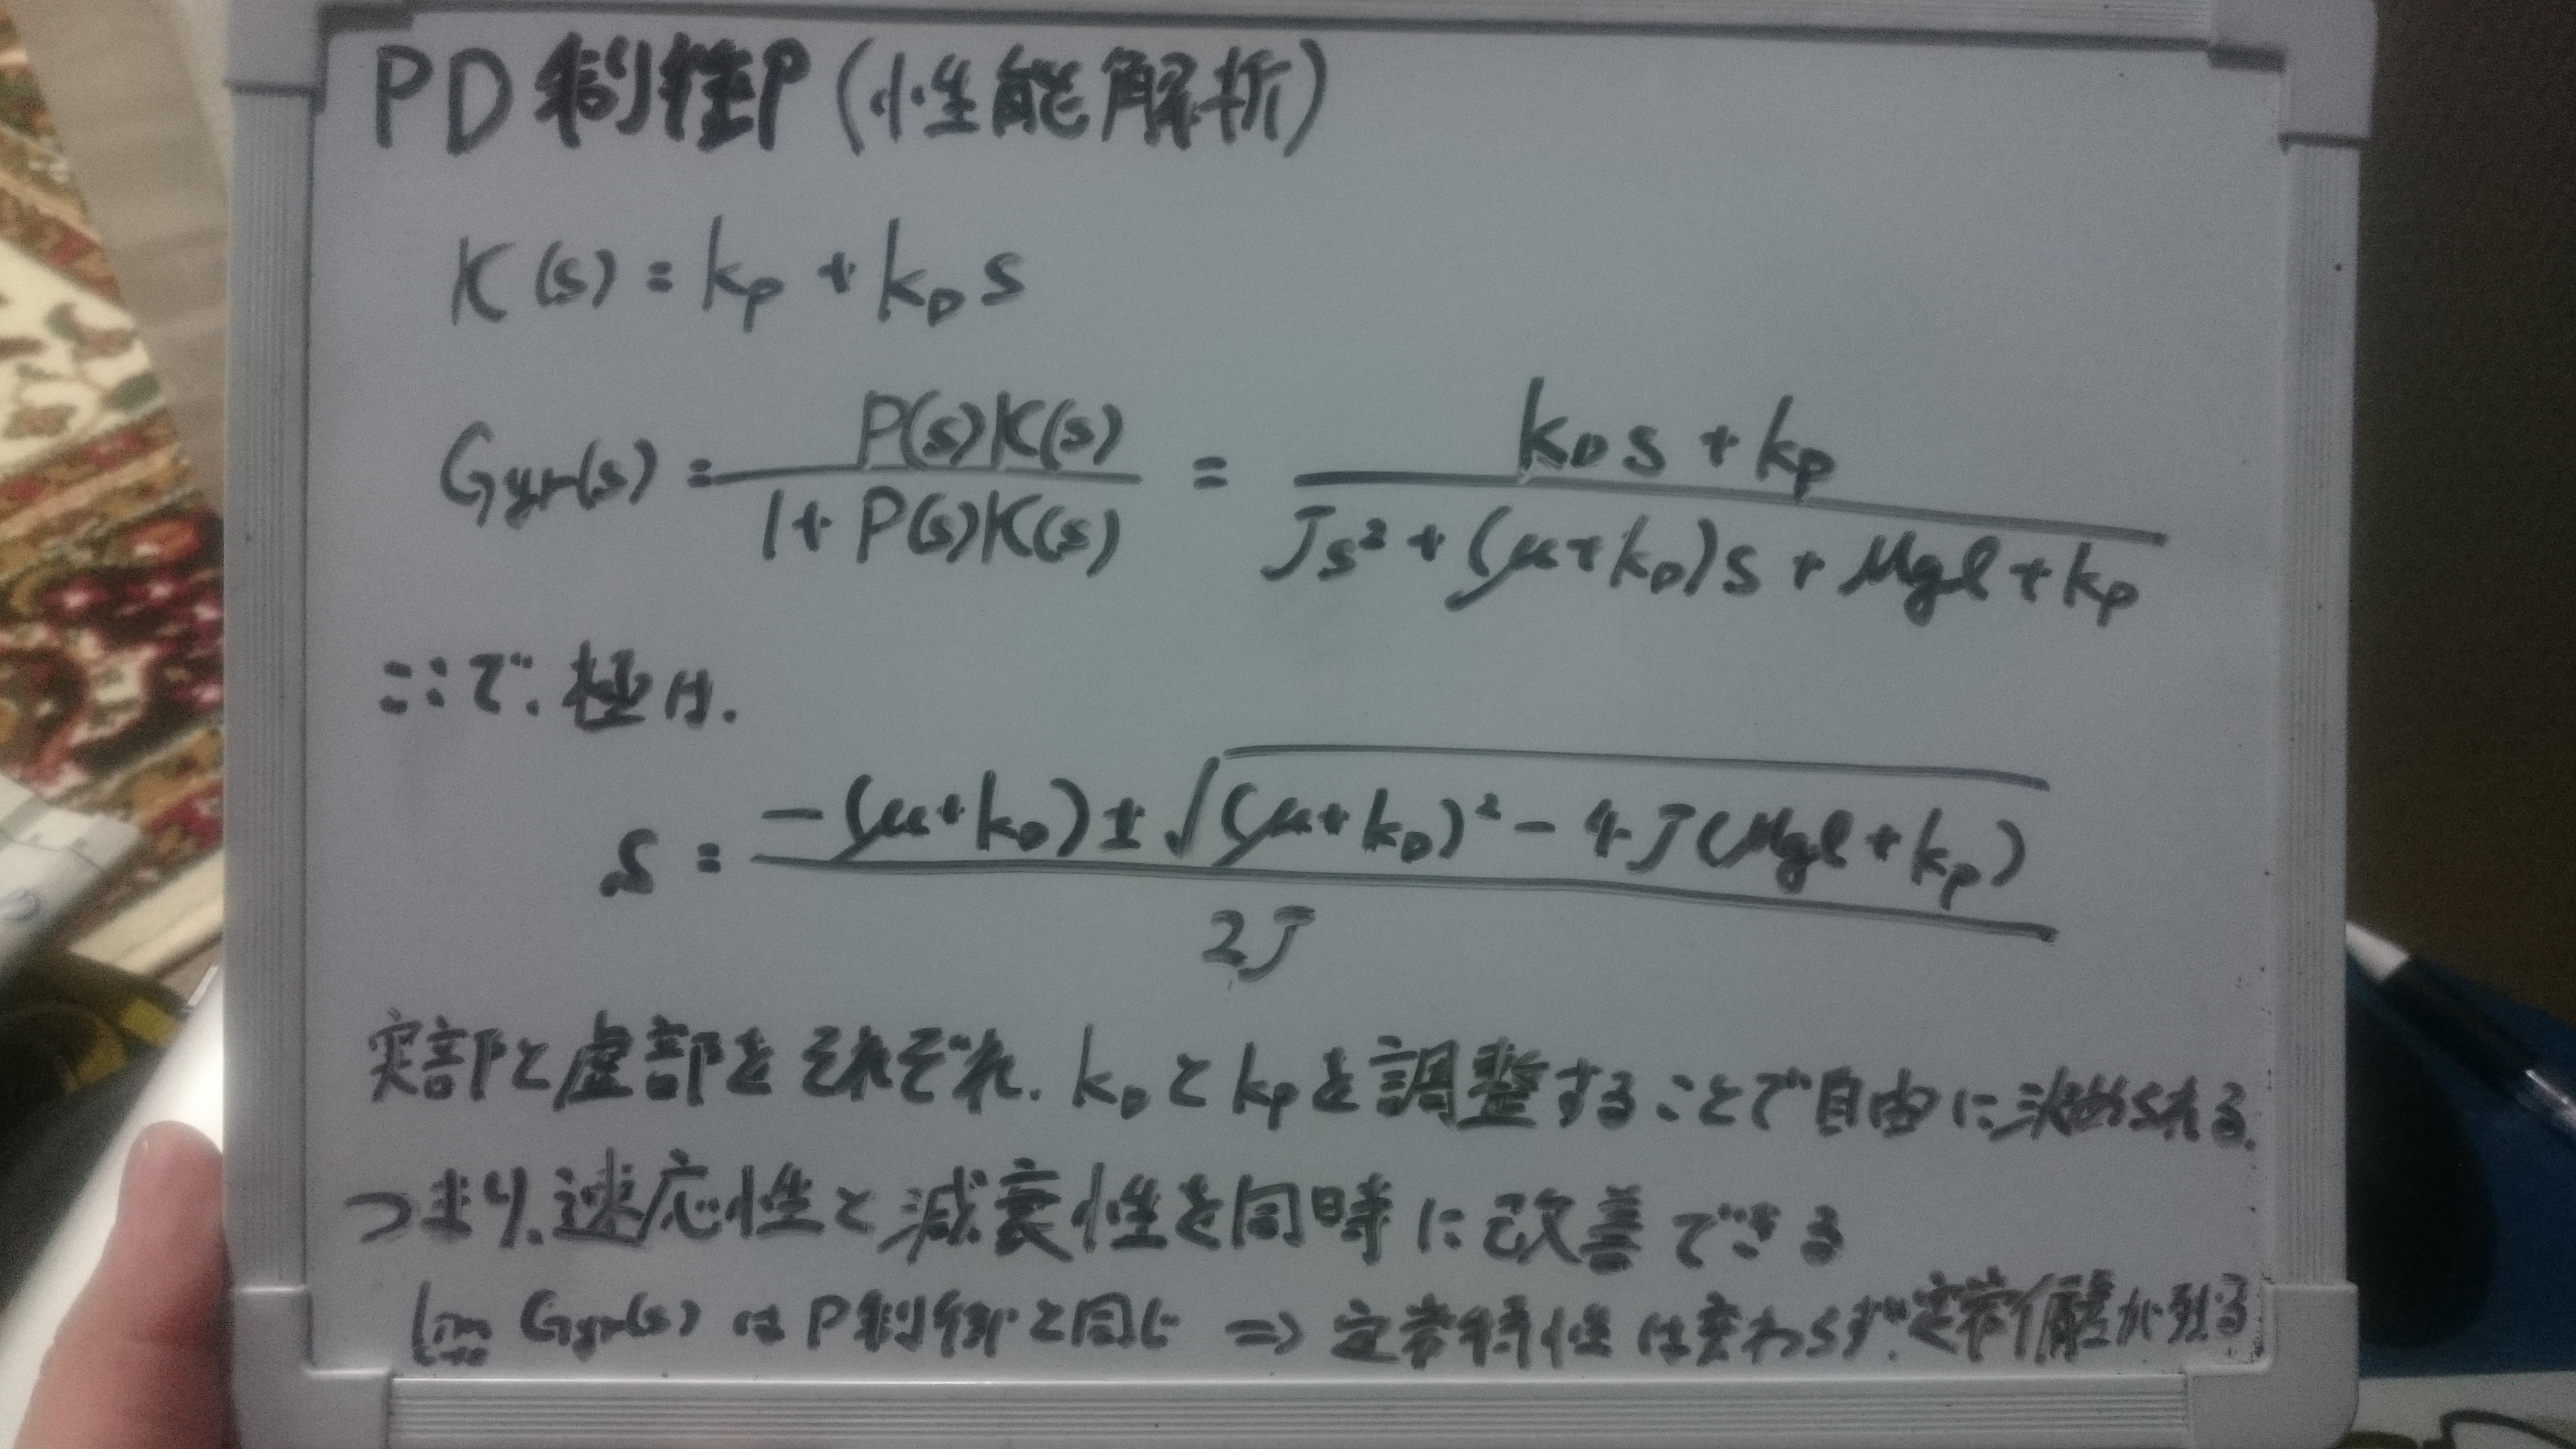 PD制御 (性能解析)
K(s) = kp + kD s
Gyr(s) = P(s)K(s) / 1 + P(s)K(s) = kD s + kp / Js² + (μ+kD)s + Mgl + kp
ここで、極は、
s = −(μ+kD) ± √(μ+kD)² − 4J(Mgl + kp) / 2J
実部と虚部をそれぞれ、kDとkpを調整することで自由に決められる。
つまり、速応性と減衰性を同時に改善できる
lim Gyr(s) はP制御と同じ ⇒ 定常特性は変わらず、定常偏差が残る